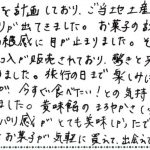 を計画しており、ご当地土産
りが出てきました。お菓子の
感に目が止まりました。そ
入が販売されており、驚きと
ました。旅行の日まで楽しみに
が、今すぐ食べたい！との気持
ました。黄味餡のまろやかさ
パリ感がとても美味(い)で
お菓子が気軽に買えて、出会えて